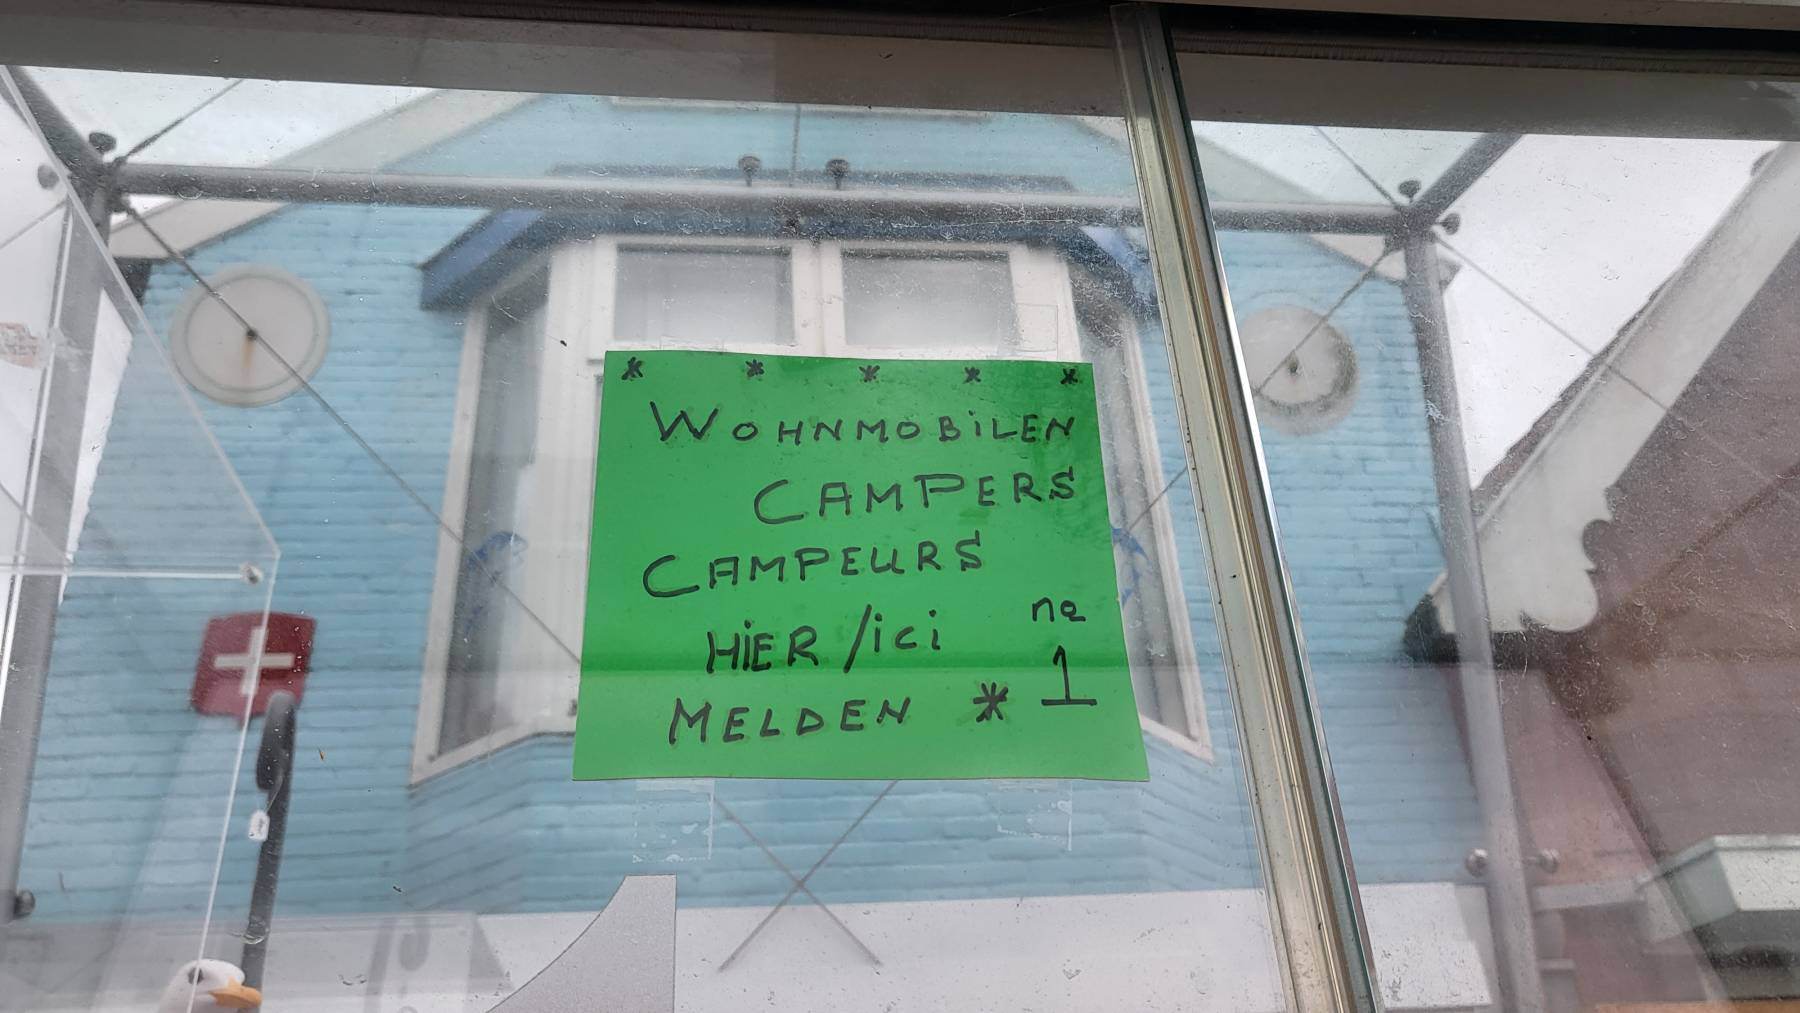 * * * * *
WOHNMOBILEN
CAMPERS
CAMPEURS
HIER /ici
MELDEN *
no
1